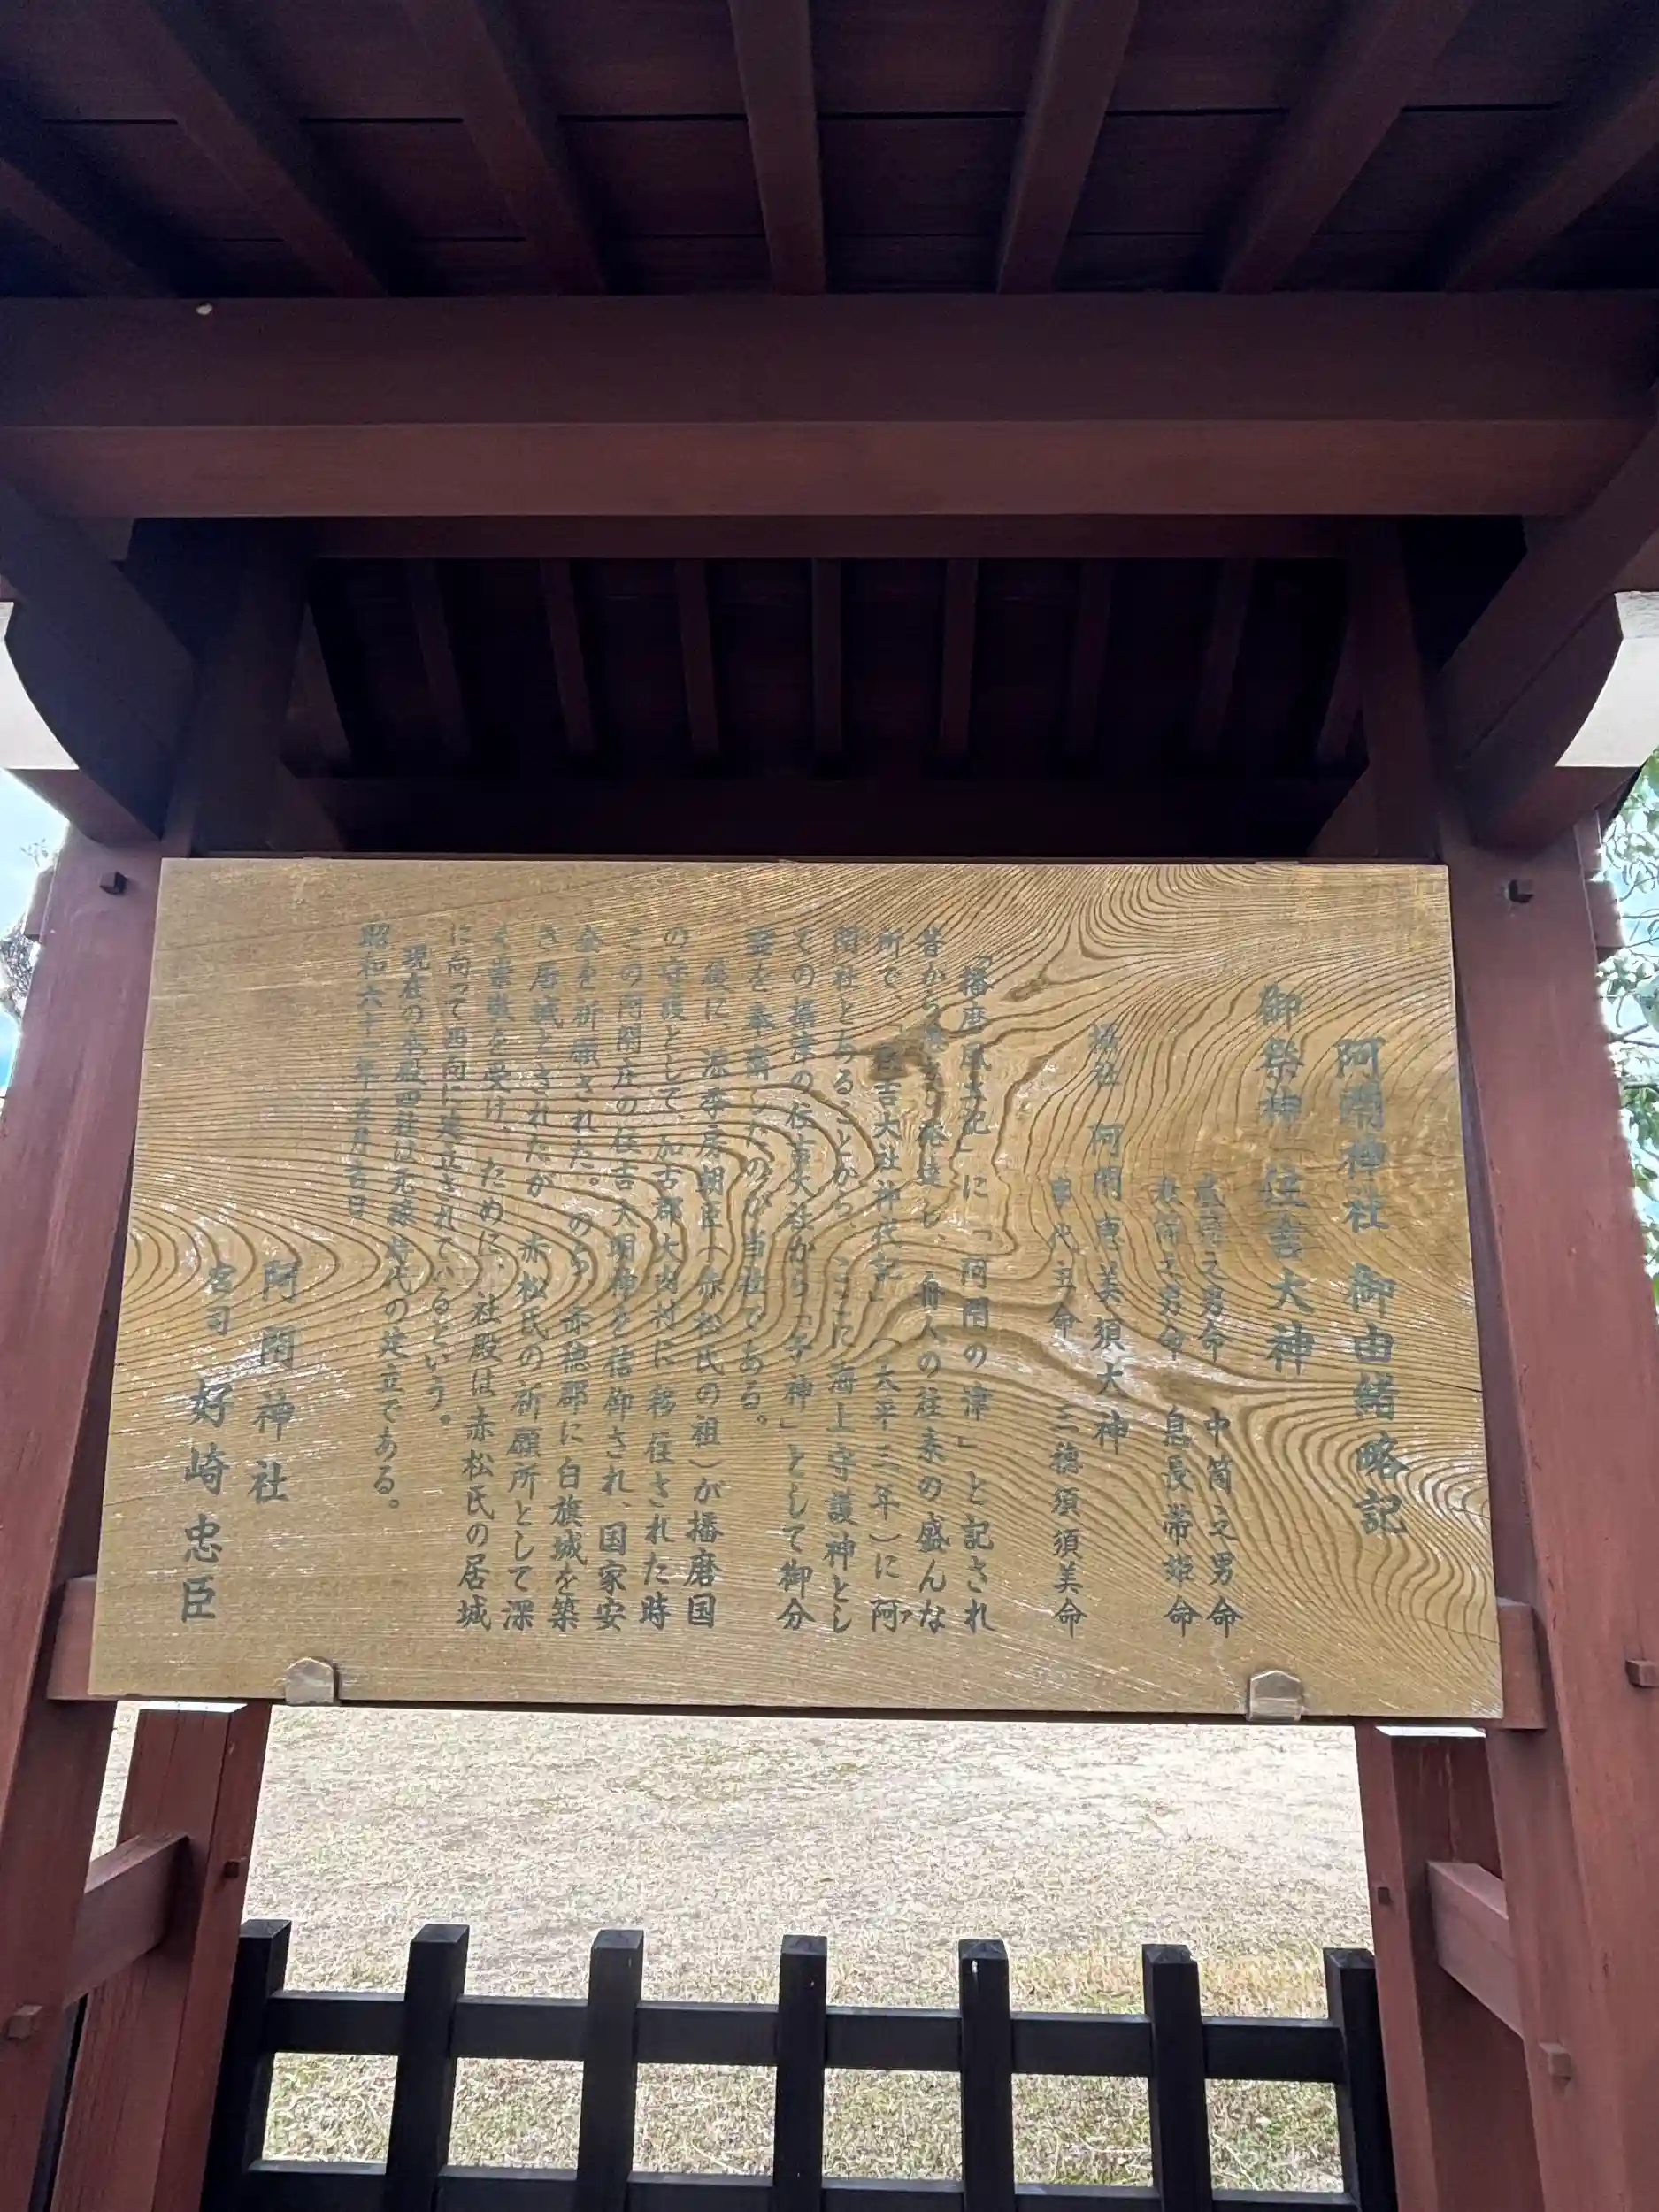 阿閇神社 御由緒略記
御祭神 住吉大神
表筒之男命 中筒之男命
底筒之男命 息長帯姫命
摂社 阿閇恵美須大神
事代主命 三穂須須美命
「播磨風土記」に「阿閇の津」と記され
昔から 発達し、舟人の往来の盛んな
所で、「住吉大社神代記」(天平三年)に阿
閇社とあることから、ここに海上守護神とし
ての摂津の住吉大社から「子神」として御分
霊を奉斎したのが当社である。
後に、源季房朝臣(赤松氏の祖)が播磨国
の守護として、加古郡大内村に移住された時
その阿閇庄の住吉大明神を信仰され、国家安
全を祈願された。のち、赤穂郡に白旗城を築
き居城とされたが、赤松氏の祈願所として深
く崇敬を受け、ために、社殿は赤松氏の居城
に向って西向に建立されているという。
現在の本殿四社は元禄時代の建立である。
昭和六十 年五月吉日
阿閇神社
宮司 好崎忠臣